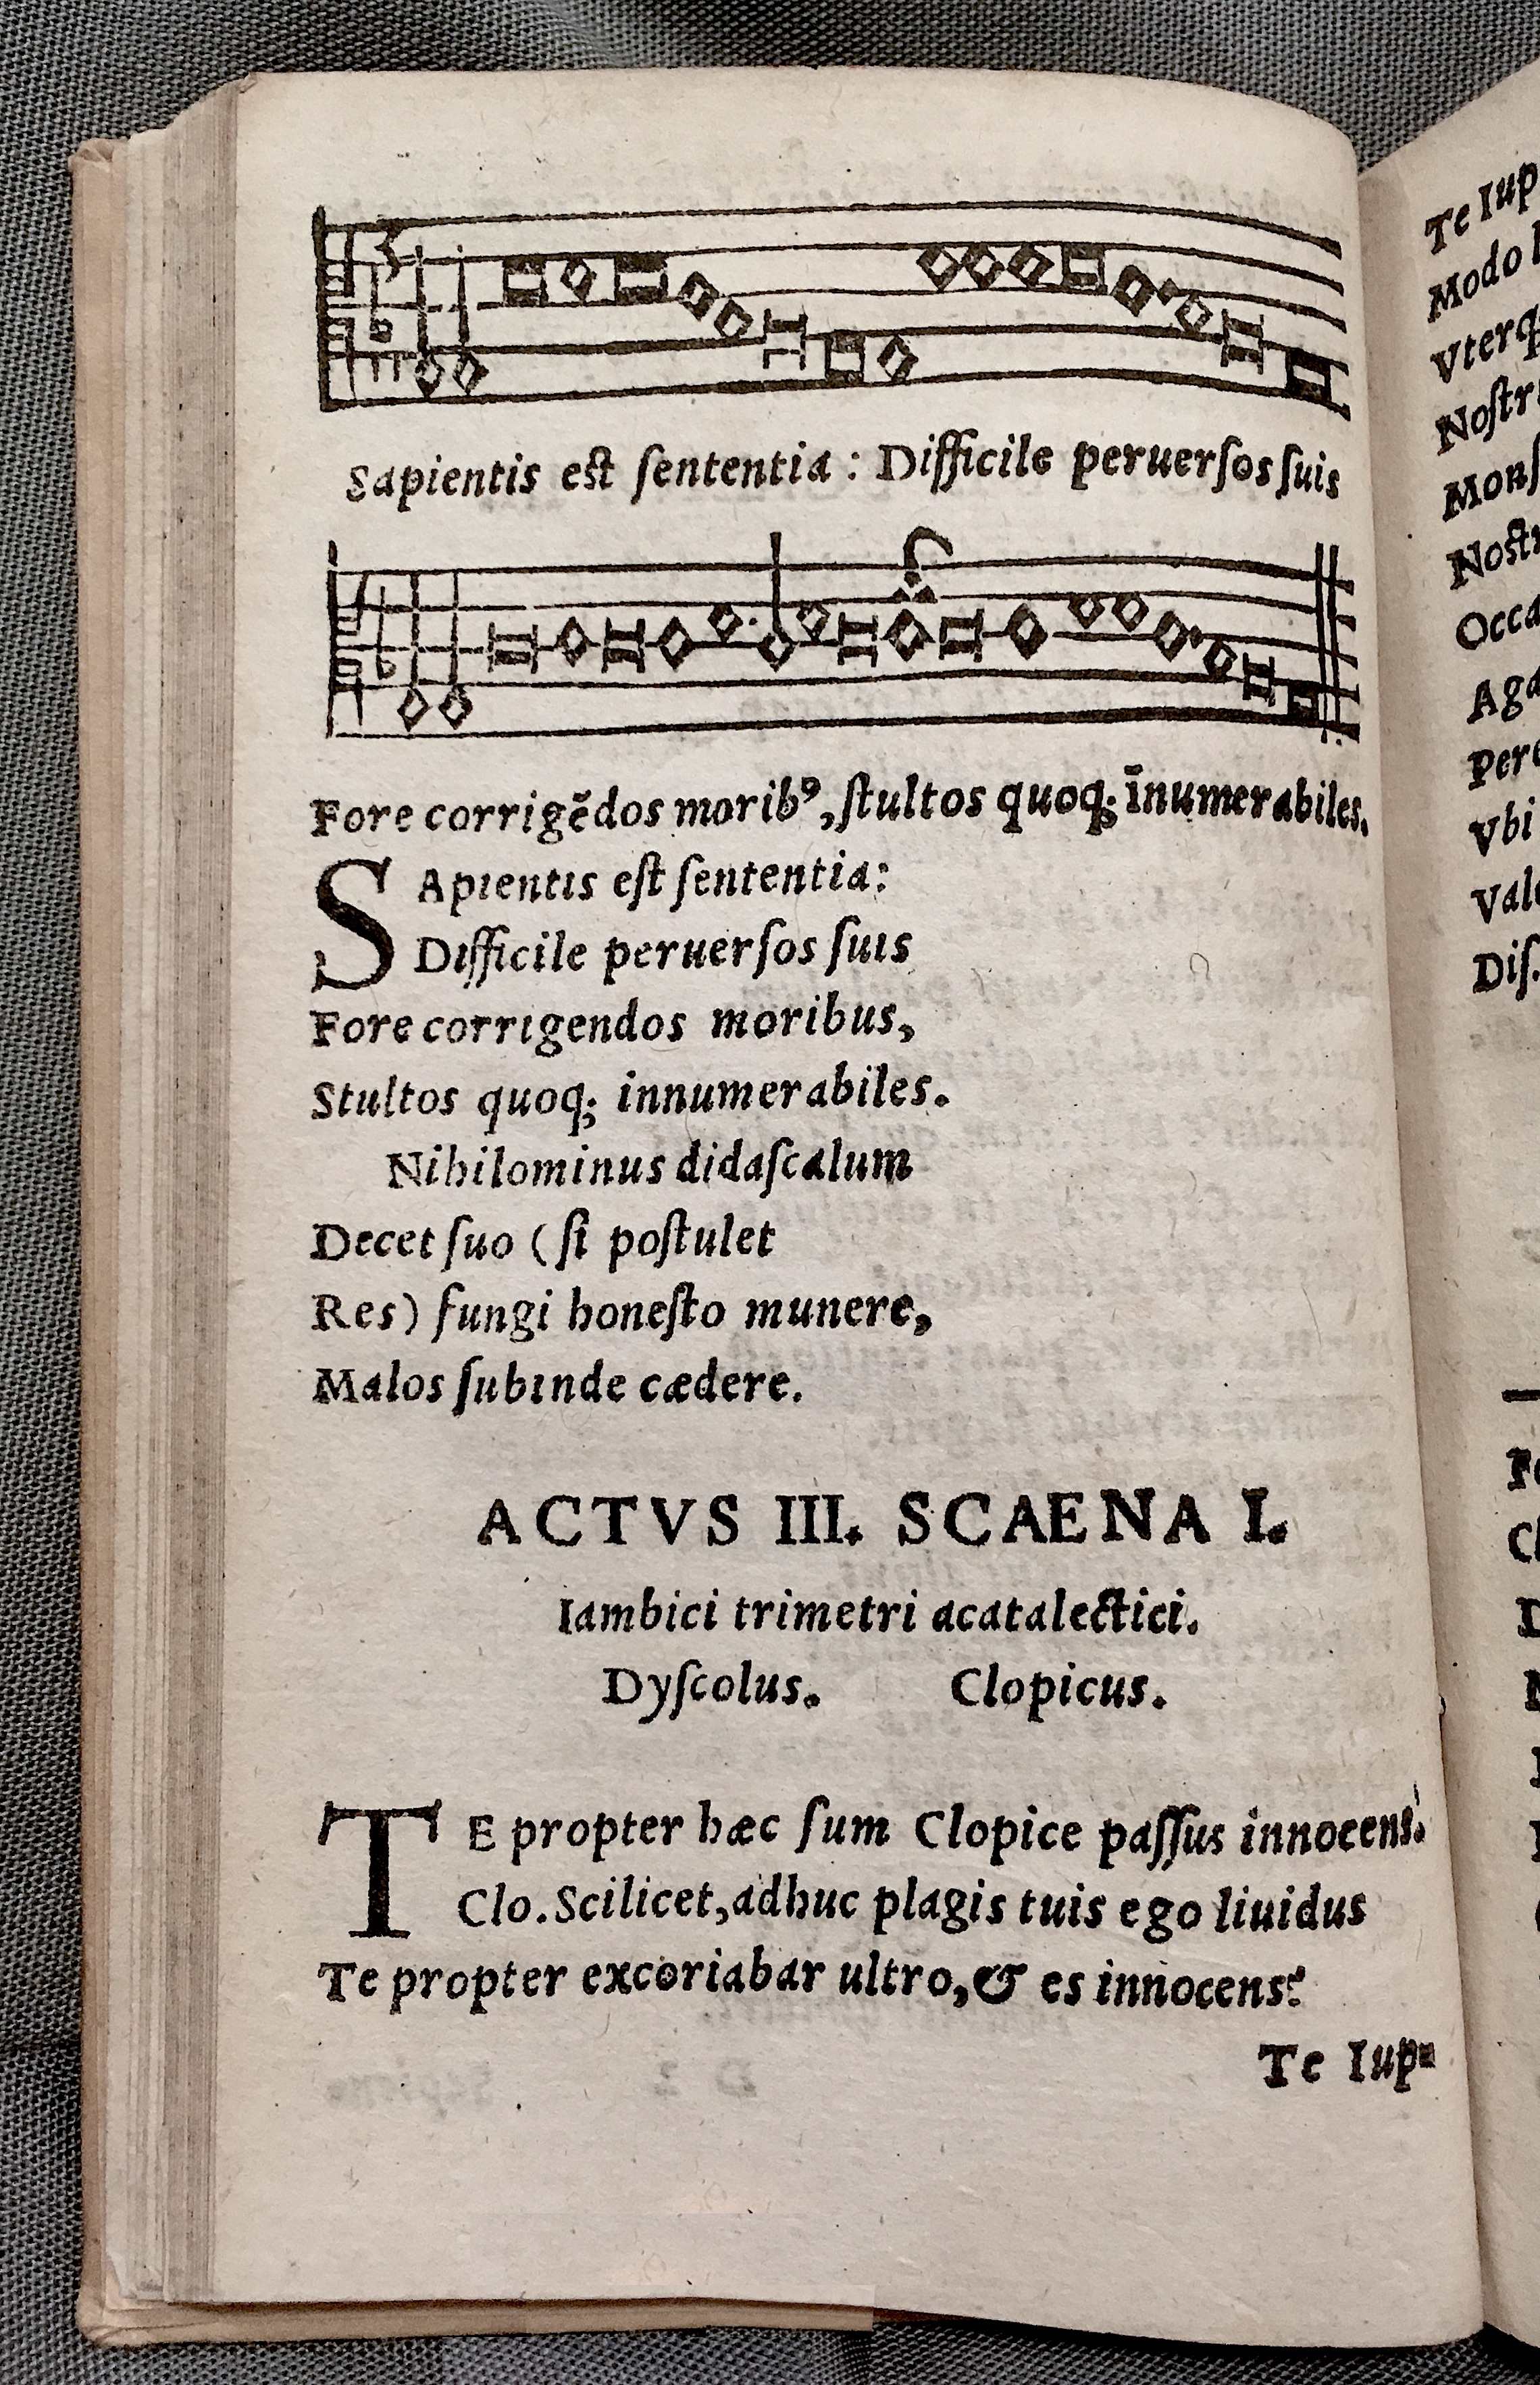 Sapientis est ſententia : Difficile peruerſos ſuis
Fore corrigẽdos moribꝰ, ſtultos quoq; īnumerabiles.
SApientis eſt ſententia:
Difficile peruerſos ſuis
Fore corrigendos moribus,
Stultos quoq; innumerabiles.
Nihilominus didaſcalum
Decet ſuo (ſi poſtulet
Res) fungi honeſto munere,
Malos ſubinde cædere.
ACTVS III. SCAENA I.
Iambici trimetri acatalectici.
Dyſcolus. Clopicus.
TE propter hæc ſum Clopice paſſus innocens.
Clo. Scilicet, adhuc plagis tuis ego liuidus
Te propter excoriabar ultro, & es innocens?
Te Iup-
Te Iup
Modo
Vterq
Noſtr
Monſ
Noſtr
Occa
Aga
Pere
Vbi
Vale
Diſ.